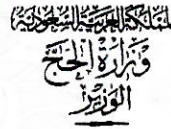 المملكة العربية السعودية
وزارة الحج
الوزير